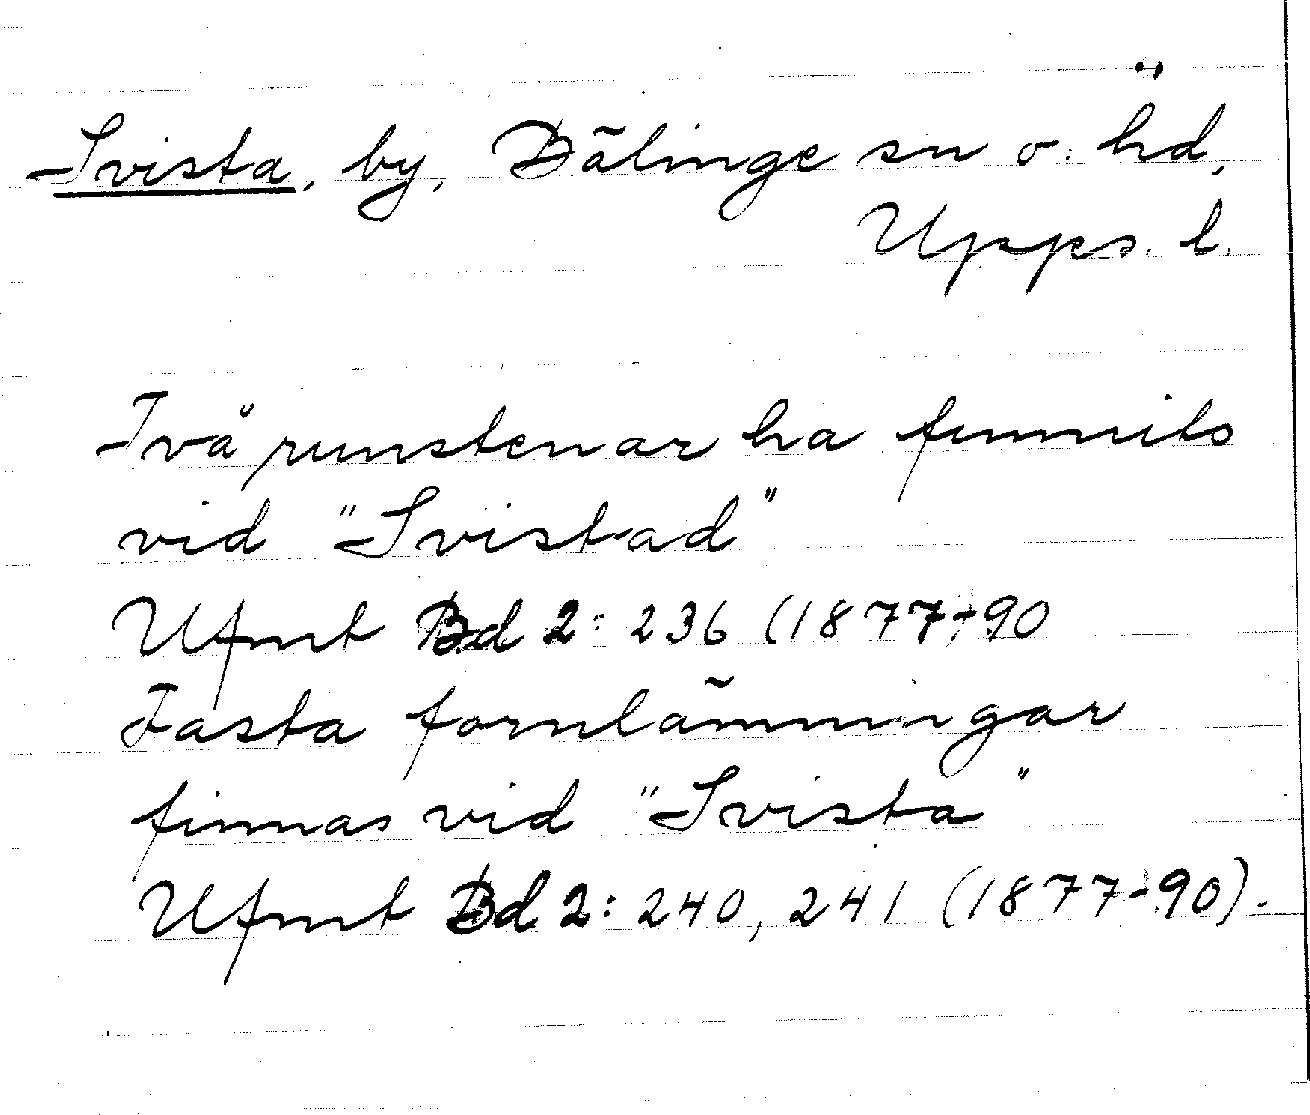 Svista, by, Bälinge sn o. hd,
Upps. l.
Två runstenar ha funnits
vid "Svistad"
Ufmt Bd 2: 236 (1877-90
Fasta fornlämningar
finnas vid "Svista"
Ufmt Bd 2: 240, 241 (1877-90).